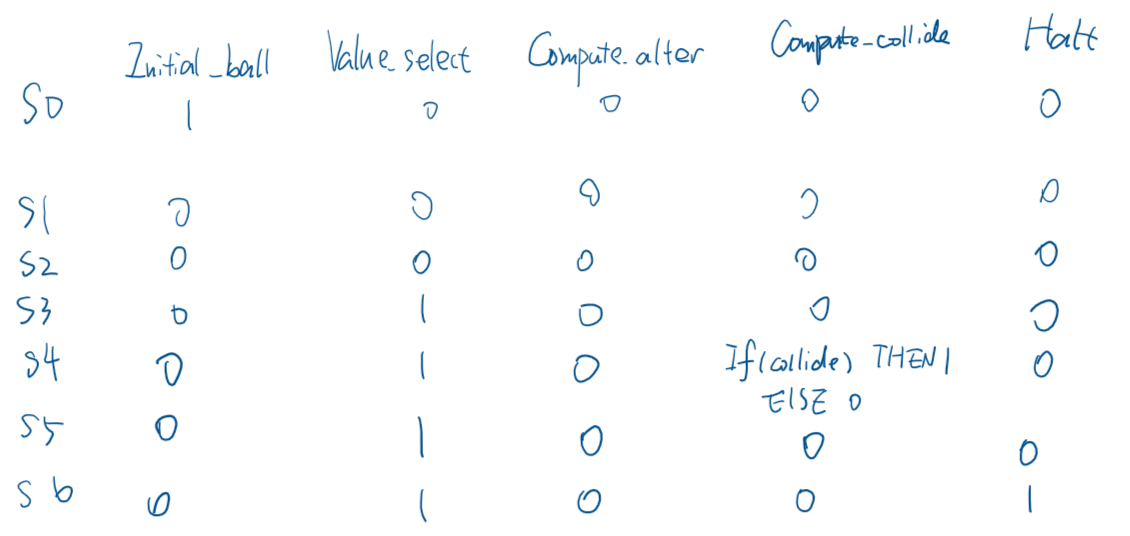 Initial_ball Value_select Compute_alter Compute_collide Halt
S0 1 0 0 0 0
S1 0 0 0 0 0
S2 0 0 0 0 0
S3 0 1 0 0 0
S4 0 1 0 If(collide) THEN 1 0
ELSE 0
S5 0 1 0 0 0
S6 0 1 0 0 1